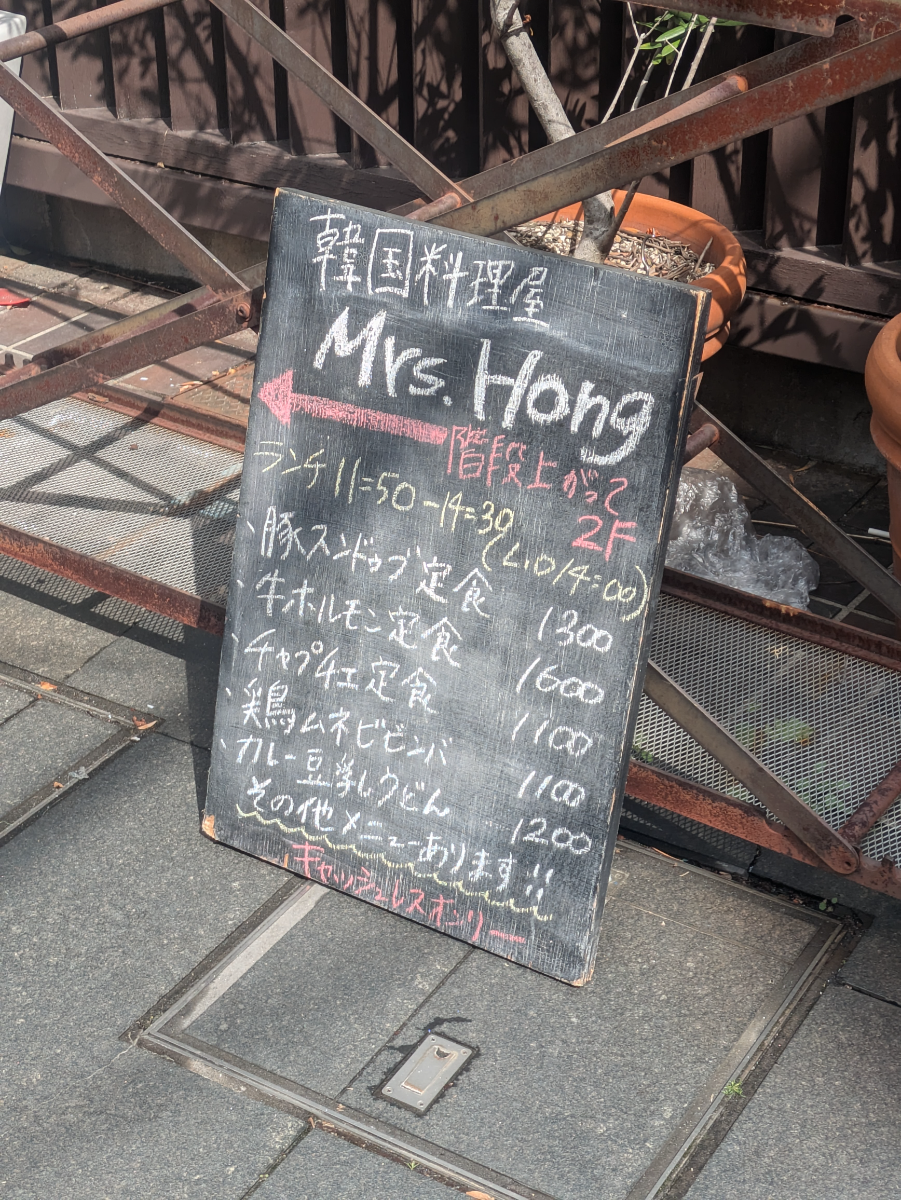 韓国料理屋
Mrs. Hong
階段上がって
2F
ランチ 11=50-14=30
(L.O 14=00)
、豚スンドゥブ定食 1300
、牛ホルモン定食 1600
、チャプチェ定食 1100
、鶏ムネビビンバ 1100
、カレー豆乳うどん 1200
その他メニューあります!!
キャッシュレスオンリー